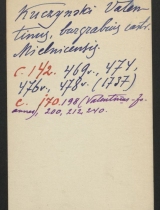 Kuczynski Valen-
tinus, burgrabius castr.
Mielnicensis.
C. 142. 469v., 474.
476v., 478v. (1737)
C. 170. 198 (Valentinus-Jo-
annes), 200, 212. 240.